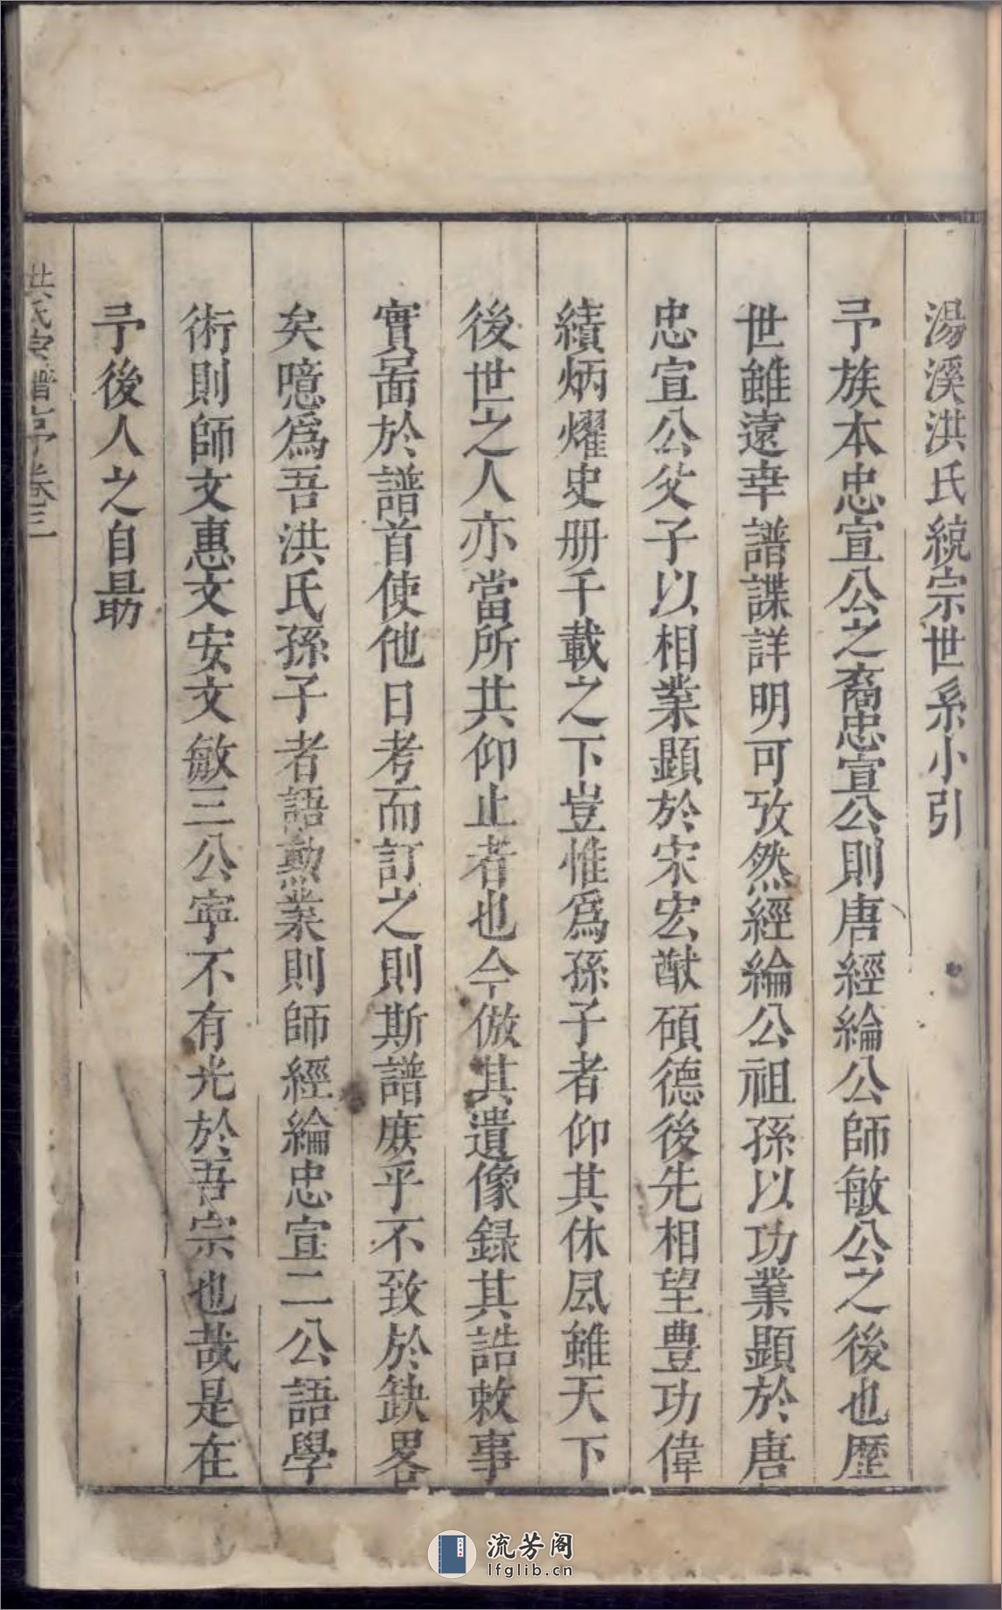 湯溪洪氏統宗世系小引
予族本忠宣公之裔忠宣公則唐經綸公師敏公之後也歷
世雖遠幸譜諜詳明可攷然經綸公祖孫以功業顯於唐
忠宣公父子以相業顯於宋宏猷碩德後先相望豊功偉
績炳燿史册千載之下豈惟爲孫子者仰其休風雖天下
後世之人亦當所共仰止者也今倣其遺像錄其誥敕事
實啚於譜首使他日考而訂之則斯譜庻乎不致於缺畧
矣噫爲吾洪氏孫子者語勲業則師經綸忠宣二公語學
術則師文惠文安文敏三公寧不有光於吾宗也哉是在
予後人之自勗
洪氏宗譜 卷三
流芳阁
lfglib.cn